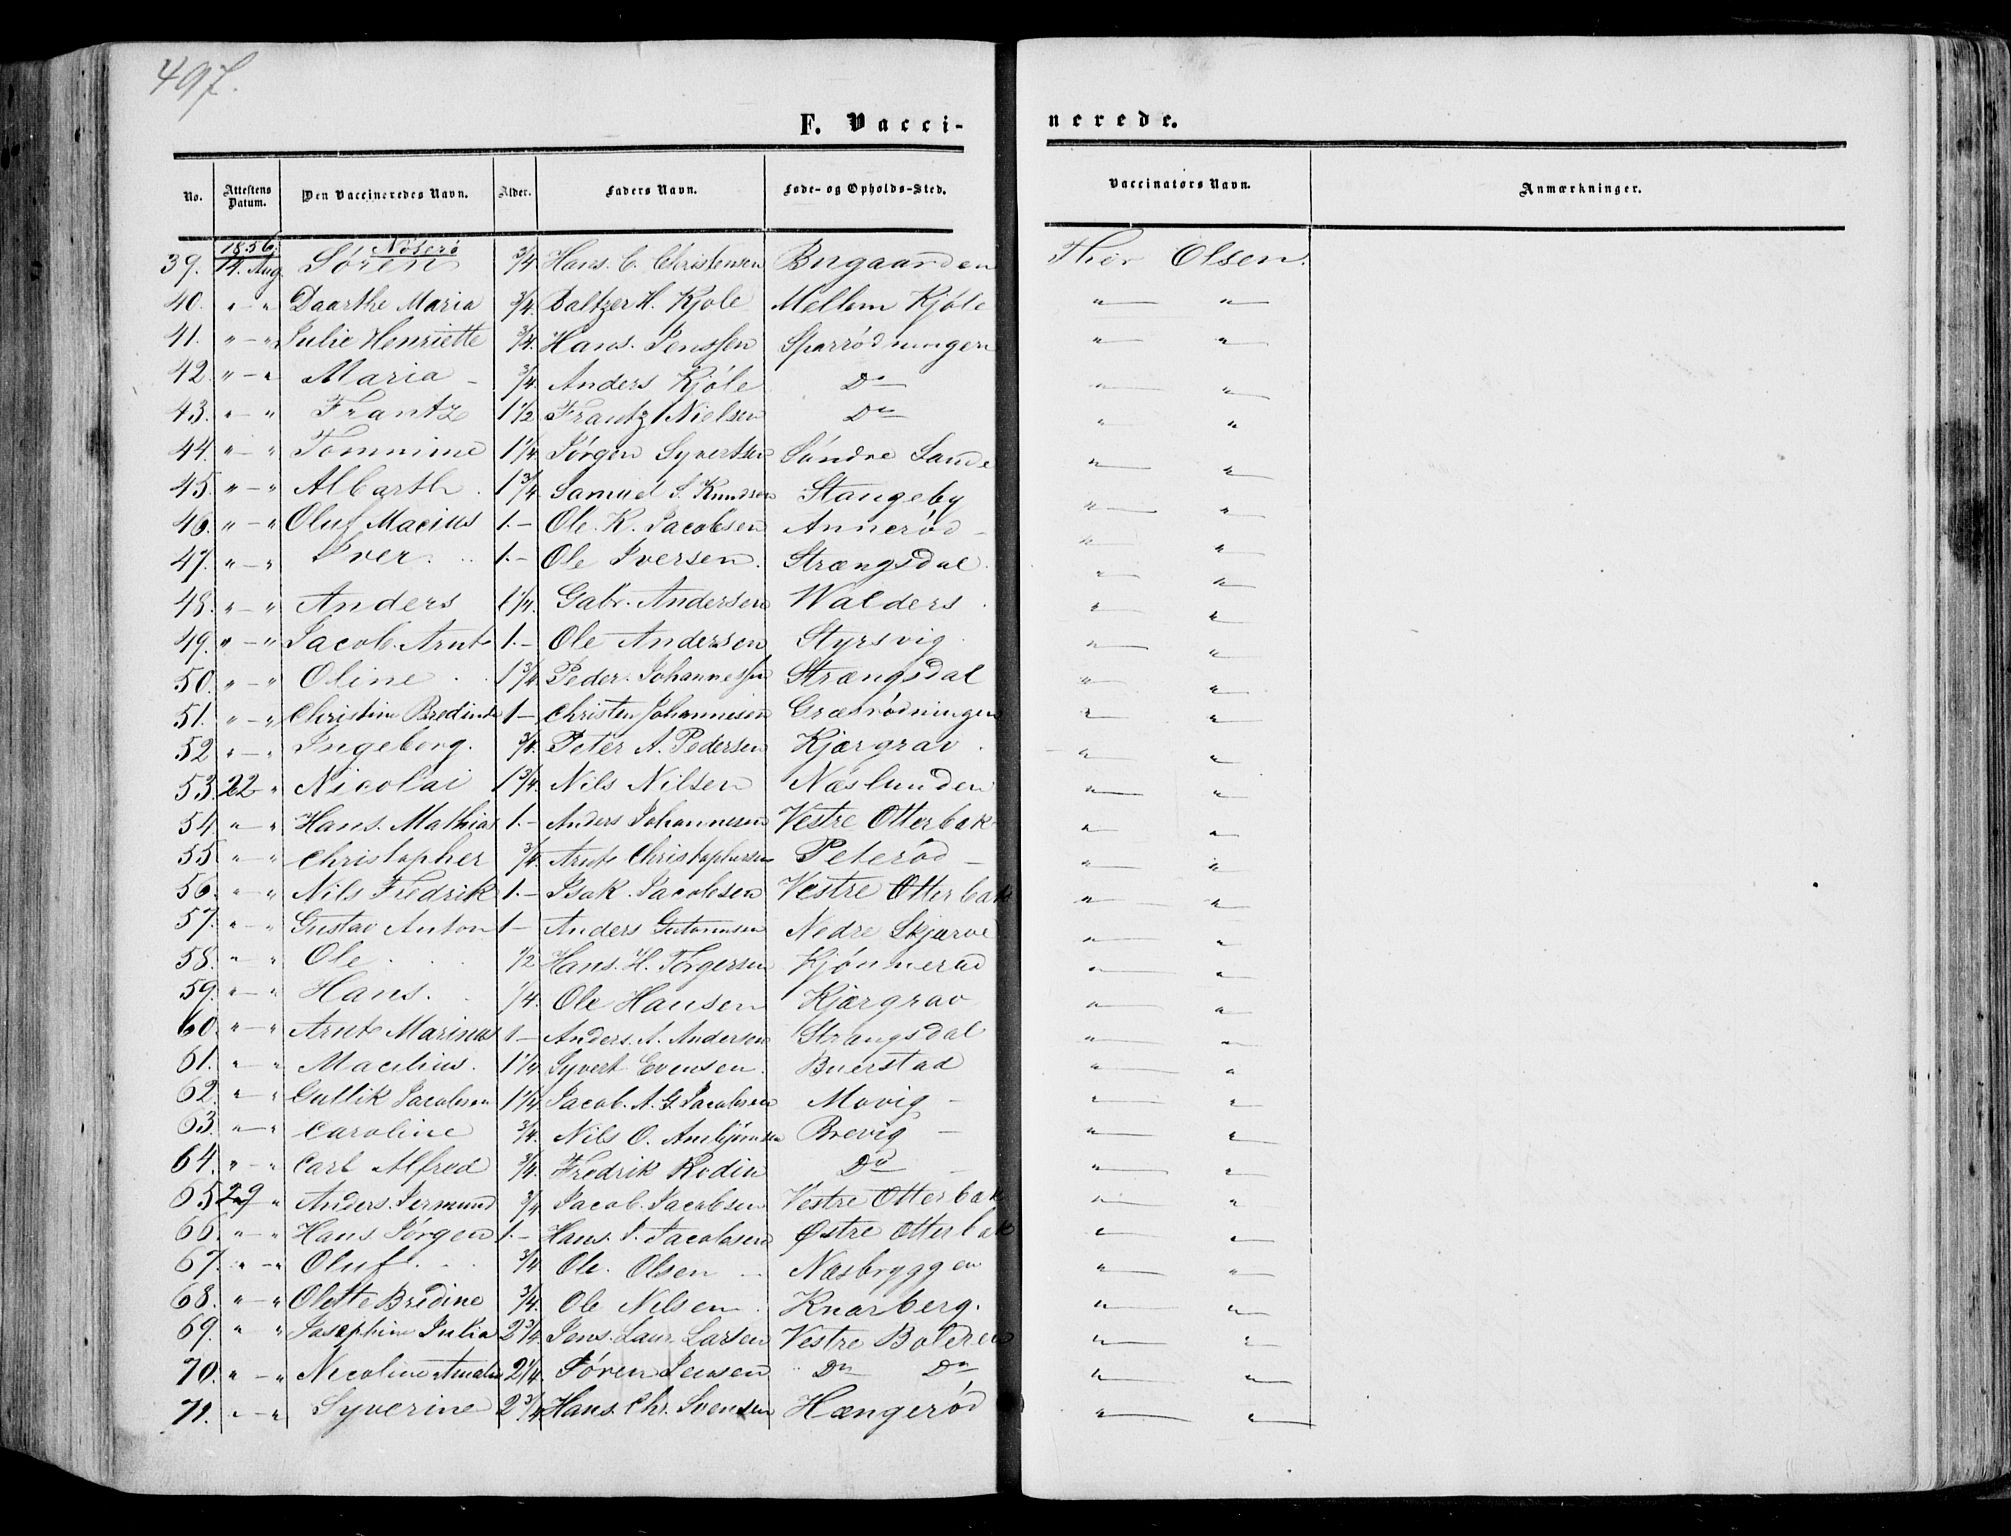 497.
F. Vacci-
nerede.
No. Attestens Datum. Den Vaccineredes Navn. Alder. Faders Navn. Føde- og Opholds-Sted. Vaccinators Navn. Anmærkninger.
1856. Nøterø
39. 14. Aug Søren 3/4 Hans. C. Christensen Bugaarden Thor Olsen.
40. " — " Daarthe Maria 3/4. Baltzer H. Kjøle Mellem Kjøle " — " —
41. " — " Julie Henriette 3/4. Hans. Jenssen Sparrødningen " — " —
42. " — " Maria — 3/4. Anders Kjøle Do " — " —
43. " — " Frantz 1 1/2 Frantz Nielsen Do " — " —
44. " — " Tommine 1 1/4 Jørgen Syvertsen Søndre Sande " — " —
45. " — " Albarth. 1 3/4 Samuel S. Knudsen Stangeby " — " —
46. " — " Oluf Macius 1. — Ole. K. Jacobsen Annerød — " — " —
47. " — " Iver. 1. — Ole Iversen. Strængsdal. " — " —
48. " — " Anders 1 1/4. Gabr. Andersen Walders. " — " —
49. " — " Jacob. Arnt 1. — Ole Andersen Styrsvig. " — " —
50. " — " Oline 1 3/4 Peder. Johannessen Strængsdal " — " —
51. " — " Christine Bredine 1 — Christen Johannesen Græsrødningen " — " —
52 " — " Ingeborg. 3/4. Peter A. Pedersen Kjærgrav. " — " —
53. 22 " Nicolai 1 3/4. Nils Nilsen Næslunden " — " —
54. " — " Hans. Mathias 1. — Anders Johannesen Vestre Otterbak " — " —
55 " — " Christopher 3/4. Arnt Christophersen Peterød — " — " —
56. " — " Nils Fredrik 1. — Isak. Jacobsen Vestre Otterbak " — " —
57. " — " Gustav Anton 1 — Anders Nedre Skjærve " — " —
58. " — " Ole. 1/2 Hans. H. Torgersen Kjønnerød " — " —
59. " — " Hans. 1/4. Ole Hansen Kjærgrav " — " —
60. " — " Arnt Marinus 1 — Anders. A. Andersen Strangsdal " — " —
61. " — " Macelius. 1 1/4 Syvert Evensen. Buerstad " — " —
62. " — " Gullik Jacobsen 1 1/4. Jacob. A. G. Jacobsen Movig — " — " —
63. " — " Caroline 3/4. Nils O. Anebjørnsen Brevig — " — " —
64. " — " Carl Alfred 3/4. Fredrik Rodin Do — " — " —
65 29 " Anders. Jermund 3/4 Jacob. Jacobsen Vestre Otterbak " — " —
66. " — " Hans Jørgen 1. — Hans. J. Jacobsen Østre Otterbak " — " —
67. " — " Oluf. 3/4 Ole. Olsen — Næsbryggen " — " —
68. " — " Olette Bredine 3/4. Ole Nilsen. Knarberg. " — " —
69. " — " Josephine Julia 2 3/4 Jens. Laur. Larsen Vestre Boleren " — " —
70. " — " Nicoline Amalie 2 1/4. Søren Jensen Do Do " — " —
71. " — " Syverine 2 3/4 Hans. Chr. Svensen Hængerød " — " —